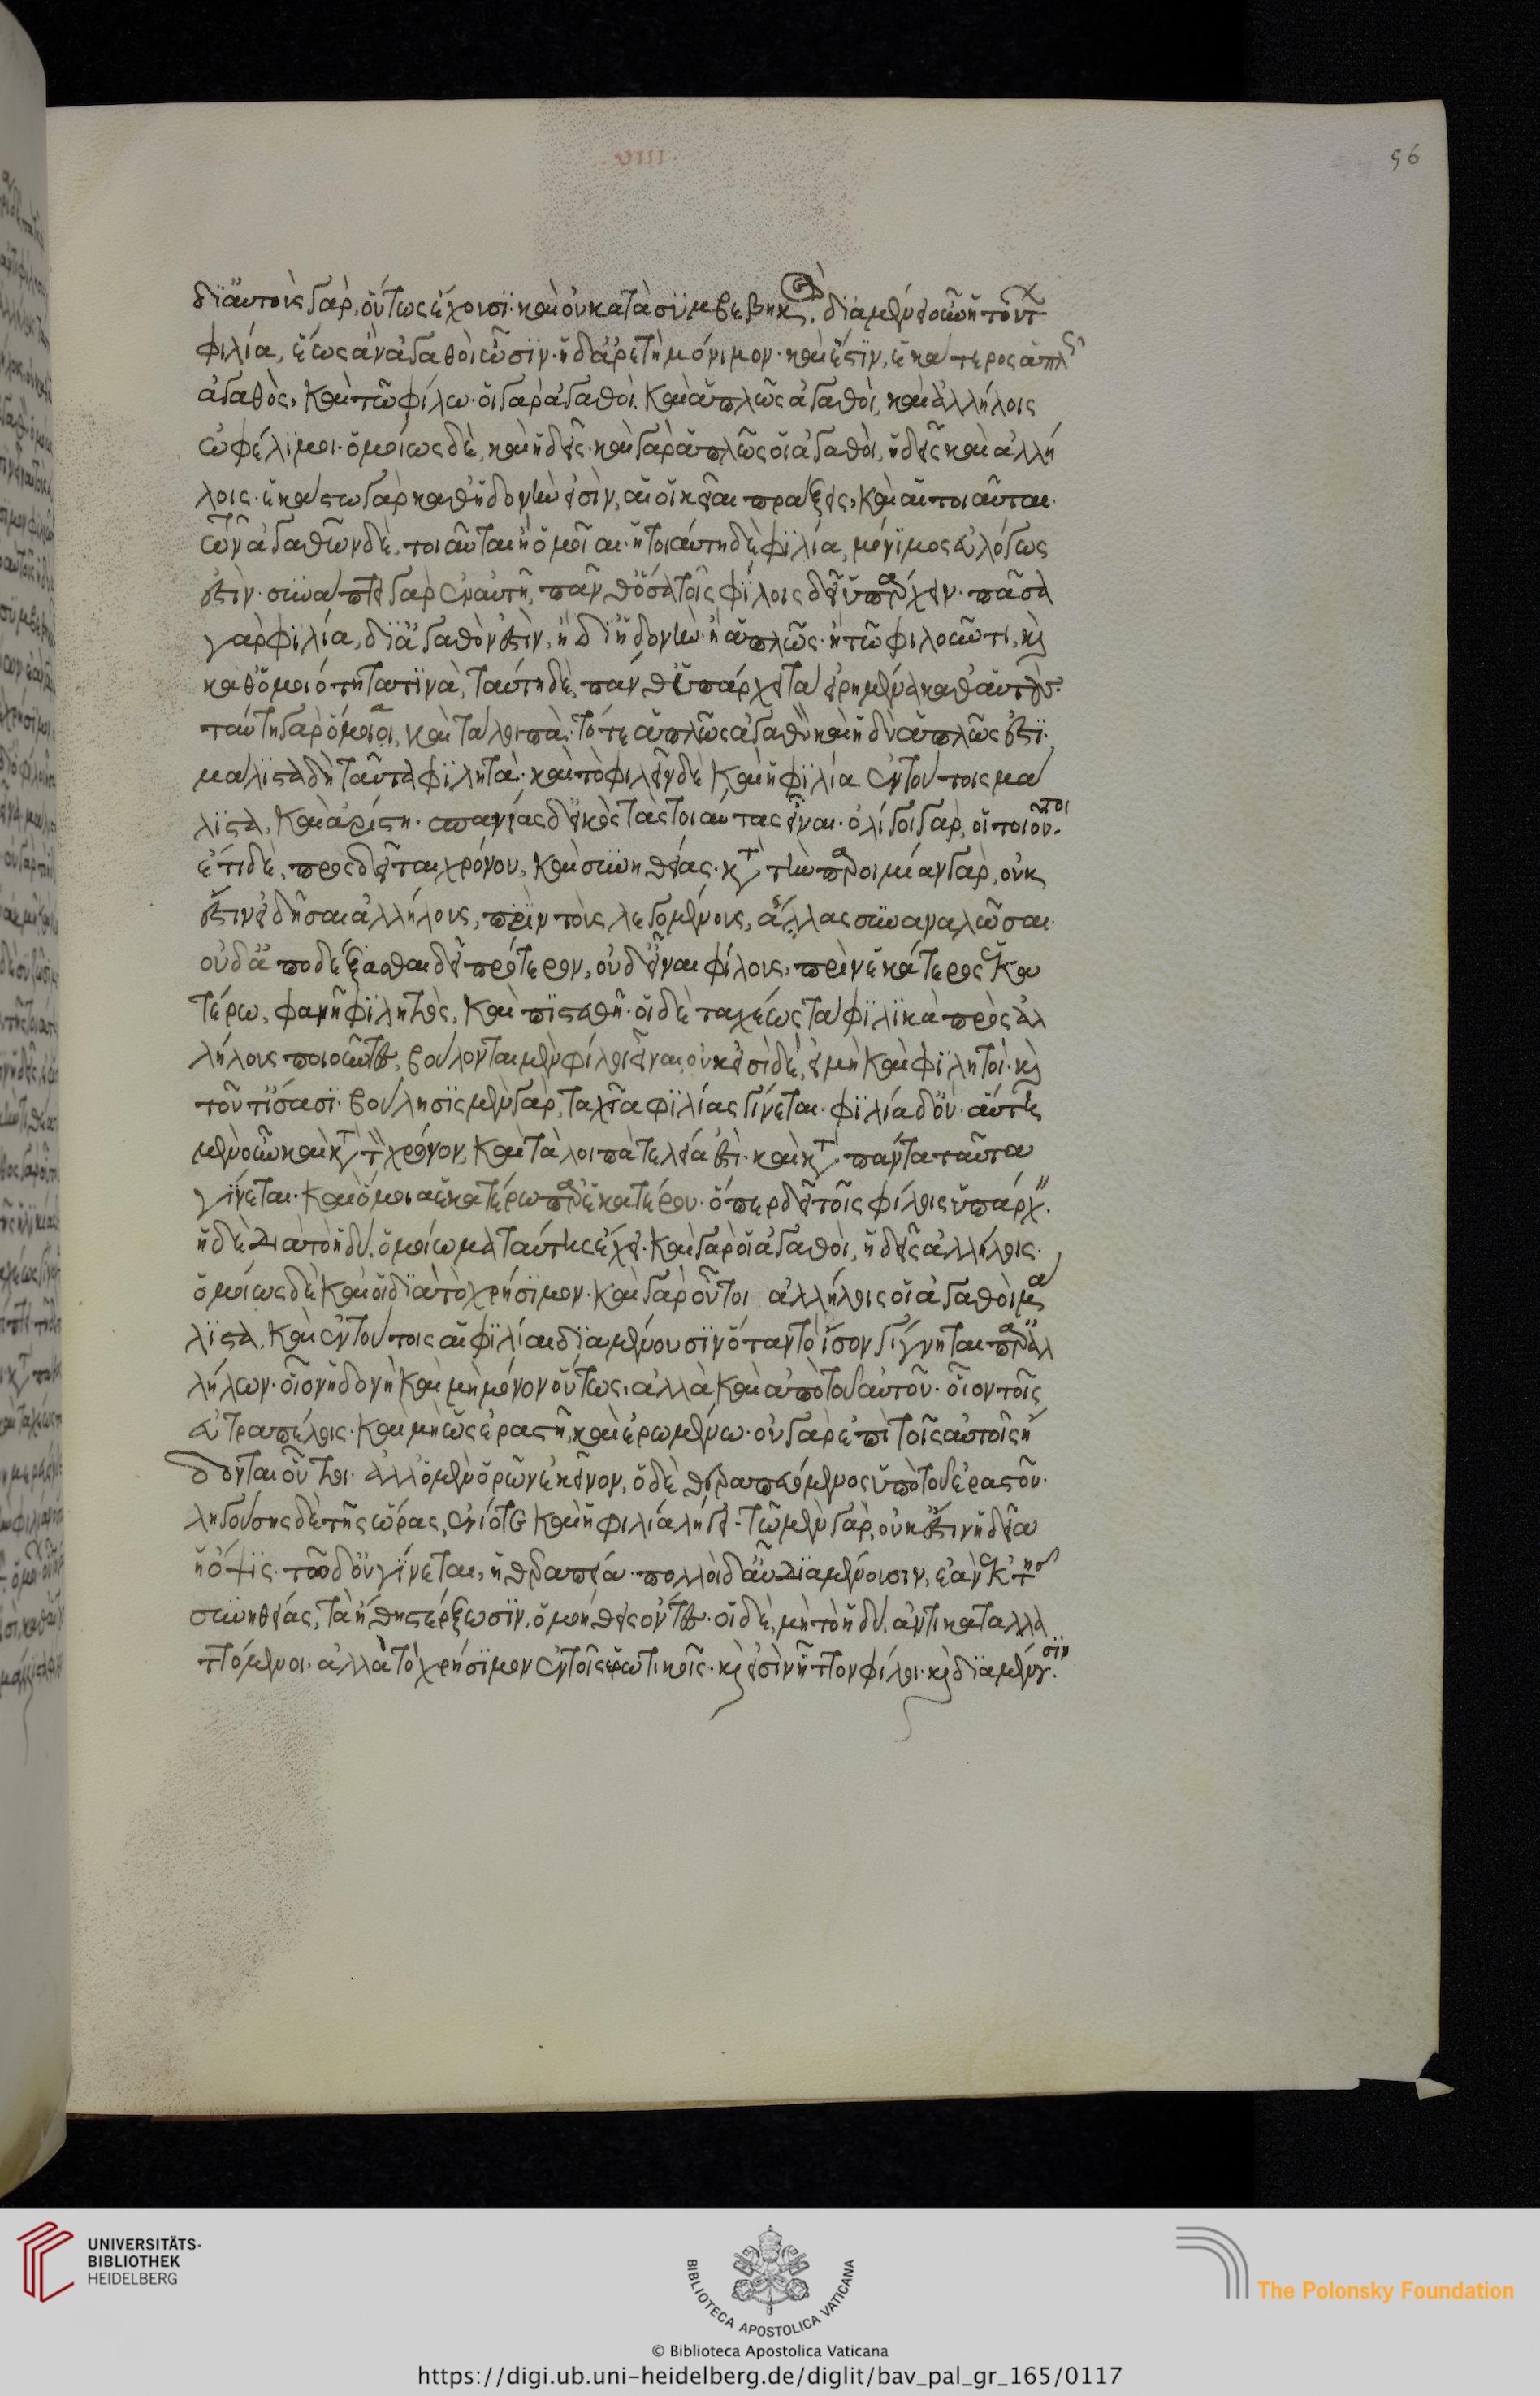 ·VIII·
56
δϊ' αὑτοὺς γὰρ, οὕτως ἔχουσϊ· καὶ οὐ κατὰ συμβεβηκός· διαμένει οὖν ἡ τούτων
φιλία, ἕως ἂν ἀγαθοὶ ὦσϊν· ἡ δ' ἀρετὴ μόνιμον· καὶ ἔστϊν, ἑκάτερος ἁπλῶς
ἀγαθὸς, καὶ τῶ φίλω· οἱ γὰρ ἀγαθοὶ, καὶ ἁπλῶς ἀγαθοὶ, καὶ ἀλλήλοις
ὠφέλϊμοι· ὁμοίως δὲ, καὶ ἡδεῖς· καὶ γὰρ ἁπλῶς οἱ ἀγαθοὶ, ἡδεῖς καὶ ἀλλή
λοις· ἑκάστω γὰρ καθ' ἡδονὴν εἰσὶν, αἱ οἰκεῖαι πράξεις, καὶ αἱ τοιαῦται·
τῶν ἀγαθῶν δὲ, τοιαῦται ἢ ὅμοιαι· ἡ τοιαύτη δὲ φϊλία, μόνϊμος εὐλόγως
ἐστὶν· συνάπτει γὰρ ἐν αὐτῆ, πάνθ' ὅσα τοῖς φϊλοις δεῖ ὑπάρχειν· πᾶσα
γὰρ φϊλία, δϊ' ἀγαθὸν ἐστὶν, ἢ δϊ' ἡδονὴν· ἢ ἁπλῶς· ἢ τῶ φιλοῦντι, καὶ
καθ' ὁμοιότητα τϊνὰ, ταύτη δὲ, πάνθ' ὑπάρχει τὰ εἰρημένα καθ' αὑτούς·
ταύτη γὰρ ὅμοιαι, καὶ τὰ λοιπὰ· τό τε ἁπλῶς ἀγαθὸν καὶ ἡδὺ ἁπλῶς ἐστϊ·
μάλϊστα δὴ ταῦτα φϊλητὰ· καὶ τὸ φιλεῖν δὲ καὶ ἡ φϊλία ἐν τούτοις μά
λϊστα, καὶ ἀρίστη· σπανίας δ' εἰκὸς τὰς τοιαύτας εἶναι· ὀλίγοι γὰρ, οἱ τοιοῦτοι·
ἔτι δὲ, προσδεῖται χρόνου, καὶ συνηθείας· κατὰ τὴν παροιμίαν γὰρ, οὐκ
ἔστιν εἰδῆσαι ἀλλήλους, πρὶν τοὺς λεγομένους, ἅλας συναναλῶσαι·
οὐδ' ἀποδέξασθαι δεῖ πρότερον, οὐδ' εἶναι φίλους, πρὶν ἑκάτερος ἑκα
τέρω, φανῆ φϊλητὸς, καὶ πϊστευθῆ· οἱ δὲ ταχέως τὰ φϊλϊκὰ πρὸς ἀλ
λήλους ποιοῦντες, βούλονται μὲν φίλοι εἶναι, οὐκ εἰσὶ δὲ, εἰ μὴ καὶ φϊλητοὶ· καὶ
τοῦτ' ἴσασϊ· βούλησϊς μὲν γὰρ, ταχεῖα φϊλίας γίνεται· φϊλία δ' οὔ· αὕτη
μὲν οὖν καὶ κατὰ τὸν χρόνον, καὶ τὰ λοιπὰ τελεία ἐστὶ· καὶ κατὰ πάντα ταῦτα
γίνεται· καὶ ὅμοια ἑκατέρω παρ' ἑκατέρου· ὅπερ δεῖ τοῖς φίλοις ὑπάρχειν·
ἡ δὲ διὰ τὸ ἡδὺ, ὁμοίωμα ταύτης ἔχει· καὶ γὰρ οἱ ἀγαθοὶ, ἡδεῖς ἀλλήλοις·
ὁμοίως δὲ καὶ οἱ δϊὰ τὸ χρήσϊμον· καὶ γὰρ οὗτοι ἀλλήλοις οἱ ἀγαθοὶ μά
λϊστα, καὶ ἐν τούτοις αἱ φϊλίαι δϊαμένουσϊν ὅταν τὸ ἴσον γίγνηται παρ' ἀλ
λήλων· οἷον ἡδονὴ καὶ μὴ μόνον οὕτως, ἀλλὰ καὶ ἀπὸ τοῦ αὐτοῦ· οἷον τοῖς
εὐτραπέλοις· καὶ μὴ ὡς ἐραστῆ, καὶ ἐρωμένω· οὐ γὰρ ἐπὶ τοῖς αὐτοῖς ἥ
δονται οὗτοι· ἀλλ' ὁ μὲν ὁρῶν ἐκεῖνον, ὁ δὲ θεραπευόμενος ὑπὸ τοῦ ἐραστοῦ·
ληγούσης δὲ τῆς ὥρας, ἐνίοτε καὶ ἡ φιλία λήγει· τῶ μὲν γὰρ, οὐκ ἔστιν ἡδεῖα
ἡ ὄψϊς· τῶ δ' οὐ γίνεται, ἡ θεραπεία· πολλοὶ δ' αὖ δϊαμένουσιν, ἐὰν ἐκ τῆς
συνηθείας, τὰ ἤθη στέρξωσϊν, ὁμοήθεις ὄντες· οἱ δὲ, μὴ τὸ ἡδὺ, ἀντικαταλλα
ττόμενοι· ἀλλὰ τὸ χρήσϊμον ἐν τοῖς ἐρωτικοῖς· καὶ εἰσὶν ἧττον φίλοι· καὶ δϊαμένουσϊν·
UNIVERSITÄTS-
BIBLIOTHEK
HEIDELBERG
BIBLIOTECA APOSTOLICA VATICANA
The Polonsky Foundation
© Biblioteca Apostolica Vaticana
https://digi.ub.uni-heidelberg.de/diglit/bav_pal_gr_165/0117